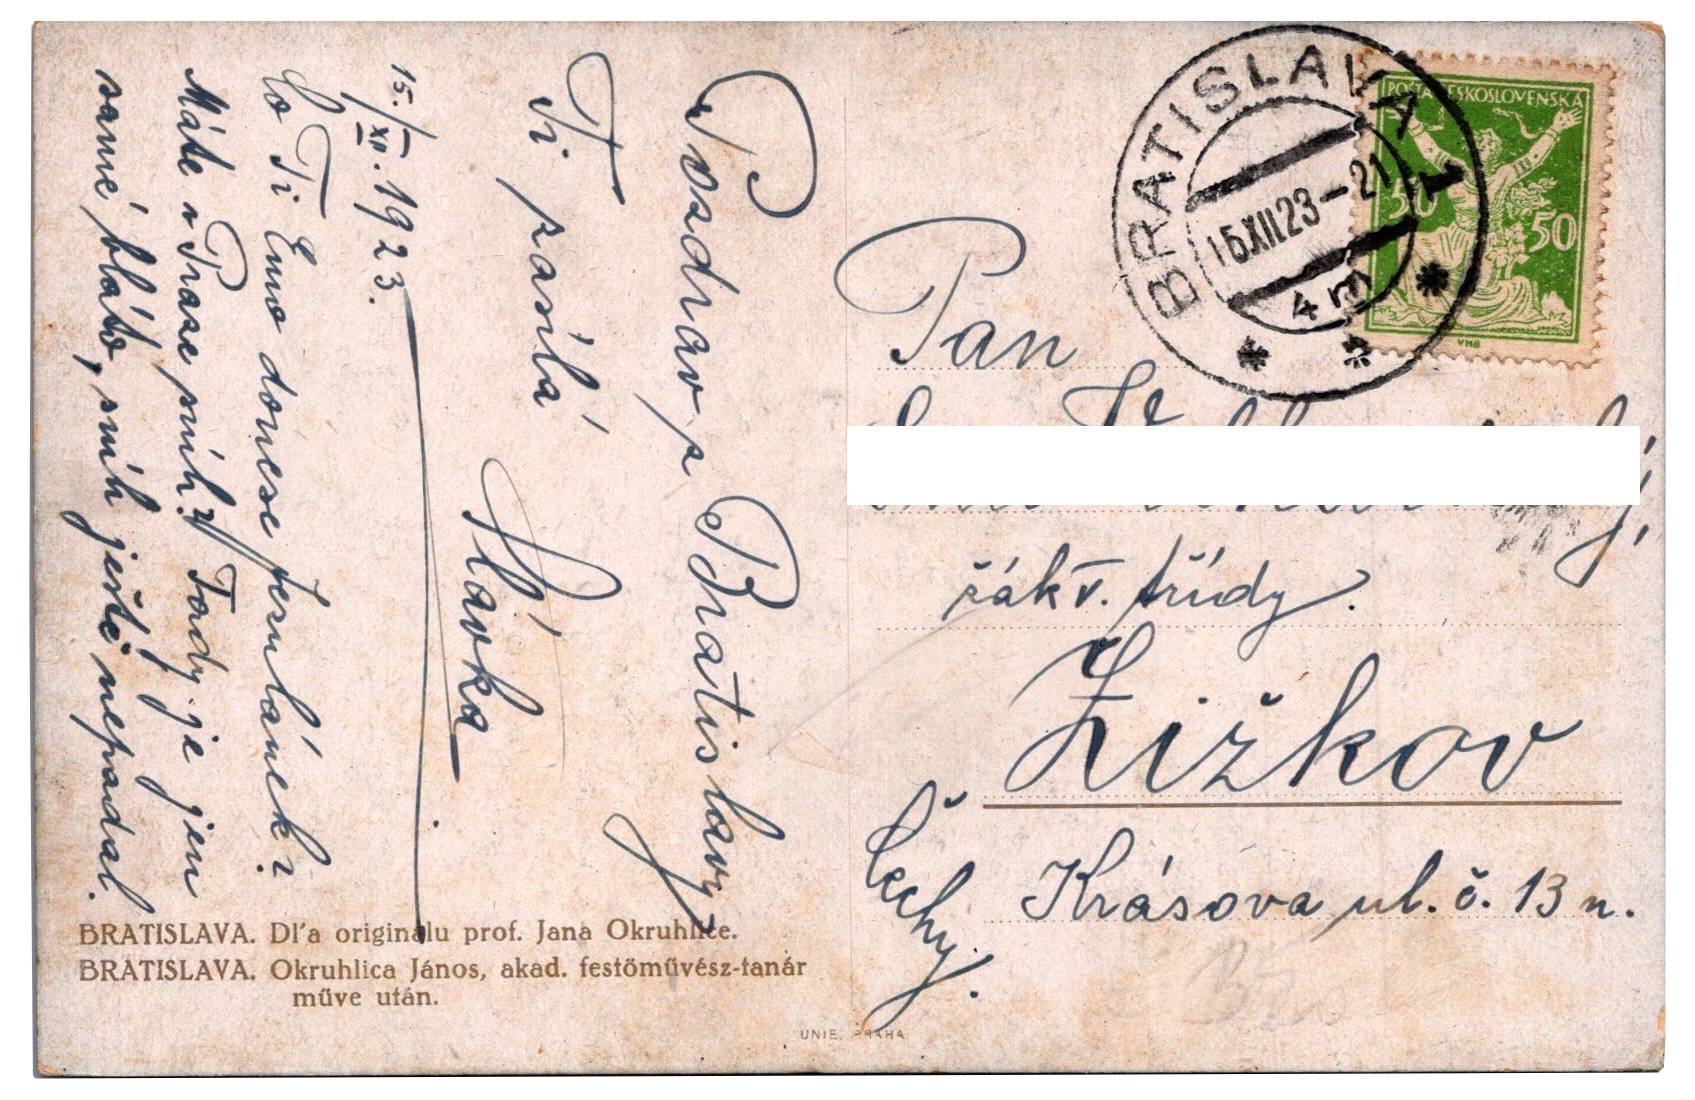 Pozdrav z Bratislavy
Ti posílá
Slávka
15./XII. 1923.
Co Ti Emo donese Jezulánek?
Máte v Praze sníh? Tady je jen
samé bláto, sníh ještě nepadal.
BRATISLAVA. Dl'a originálu prof. Jana Okruhlice.
BRATISLAVA. Okruhlica János, akad. festőművész-tanár
műve után.
UNIE, PRAHA
BRATISLAVA 1
15XII23-21
4m
POŠTA ČESKOSLOVENSKÁ
50 50
VHB
Pan
žák V. třídy.
Žižkov
Krásova ul. č. 13 n.
Čechy.